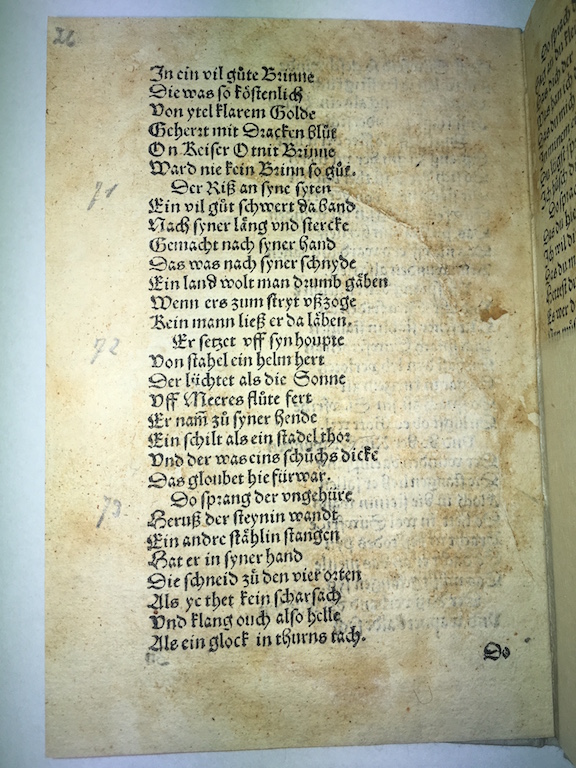 26
In ein vil gůte Brinne
Die was so köstenlich
Von ytel klarem Golde
Gehertt mit Dracken blůt
On Keiser Otnit Brinne
Ward nie kein Brinn so gůt.
71
Der Riß an syne syten
Ein vil gůt schwert da band
Nach syner läng vnd stercke
Gemacht nach syner hand
Das was nach syner schnyde
Ein land wolt man drumb gäben
Wenn ers zum stryt vßzoge
Kein mann ließ er da läben.
72
Er setzet vff syn houpte
Von stahel ein helm hert
Der lüchtet als die Sonne
Vff Meeres flůte fert
Er nam̄ zů syner hende
Ein schilt als ein stadel thor
Vnd der was eins schůchs dicke
Das gloubet hie fürwar.
73
Do sprang der vngehüre
Heruß der steynin wandt
Ein andre stählin stangen
Hat er in syner hand
Die schneid zů den vier orten
Als ye thet kein scharsach
Vnd klang ouch also helle
Als ein glock in thurns tach.
Do